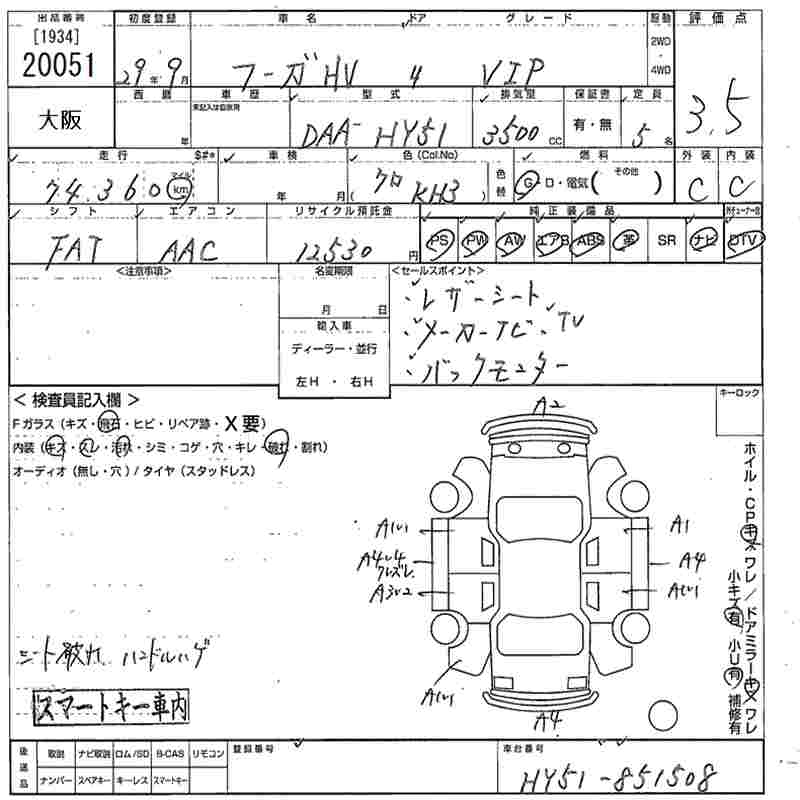 出品番号 初度登録 車名 ドア グレード 駆動 評価点
[1934]
20051
29年 9月 フーガHV 4 VIP 2WD・4WD 3.5
大阪
西暦 年 車歴 未記入は自家用 型式 排気量 保証書 定員
DAA-HY51 3500 CC 有・無 5名
走行 $#* 車検 色(Col.No) 色替 燃料 外装 内装
74,360 マイル km 年 月 クロ (KH3) G・D・電気( その他 ) C C
シフト エアコン リサイクル預託金 純正装備品
FAT AAC 12530円 PS PW AW エアB ABS 革 SR ナビ DTV
<注意事項> 名変期限 <セールスポイント>
月 日 ・レザーシート
輸入車 ・メーカーナビ・TV
ディーラー・並行 ・バックモニター
左H・右H
< 検査員記入欄 > キーロック
Fガラス(キズ・飛石・ヒビ・リペア跡・X要)
内装(キズ・スレ・汚れ・シミ・コゲ・穴・キレ・破れ・割れ)
オーディオ(無し・穴)/タイヤ(スタッドレス)
A2
A1 A1
A4 A4
A3 A1
A1
A4
ホイル・CPキズ ワレ/ドアミラーキズ ワレ
小キズ有/小U有/補修有
シート破れ ハンドルハゲ
スマートキー車内
後送品 取説 ナビ取説 ロム/SD B-CAS リモコン 登録番号 車台番号
ナンバー スペアキー キーレス スマートキー HY51-851508